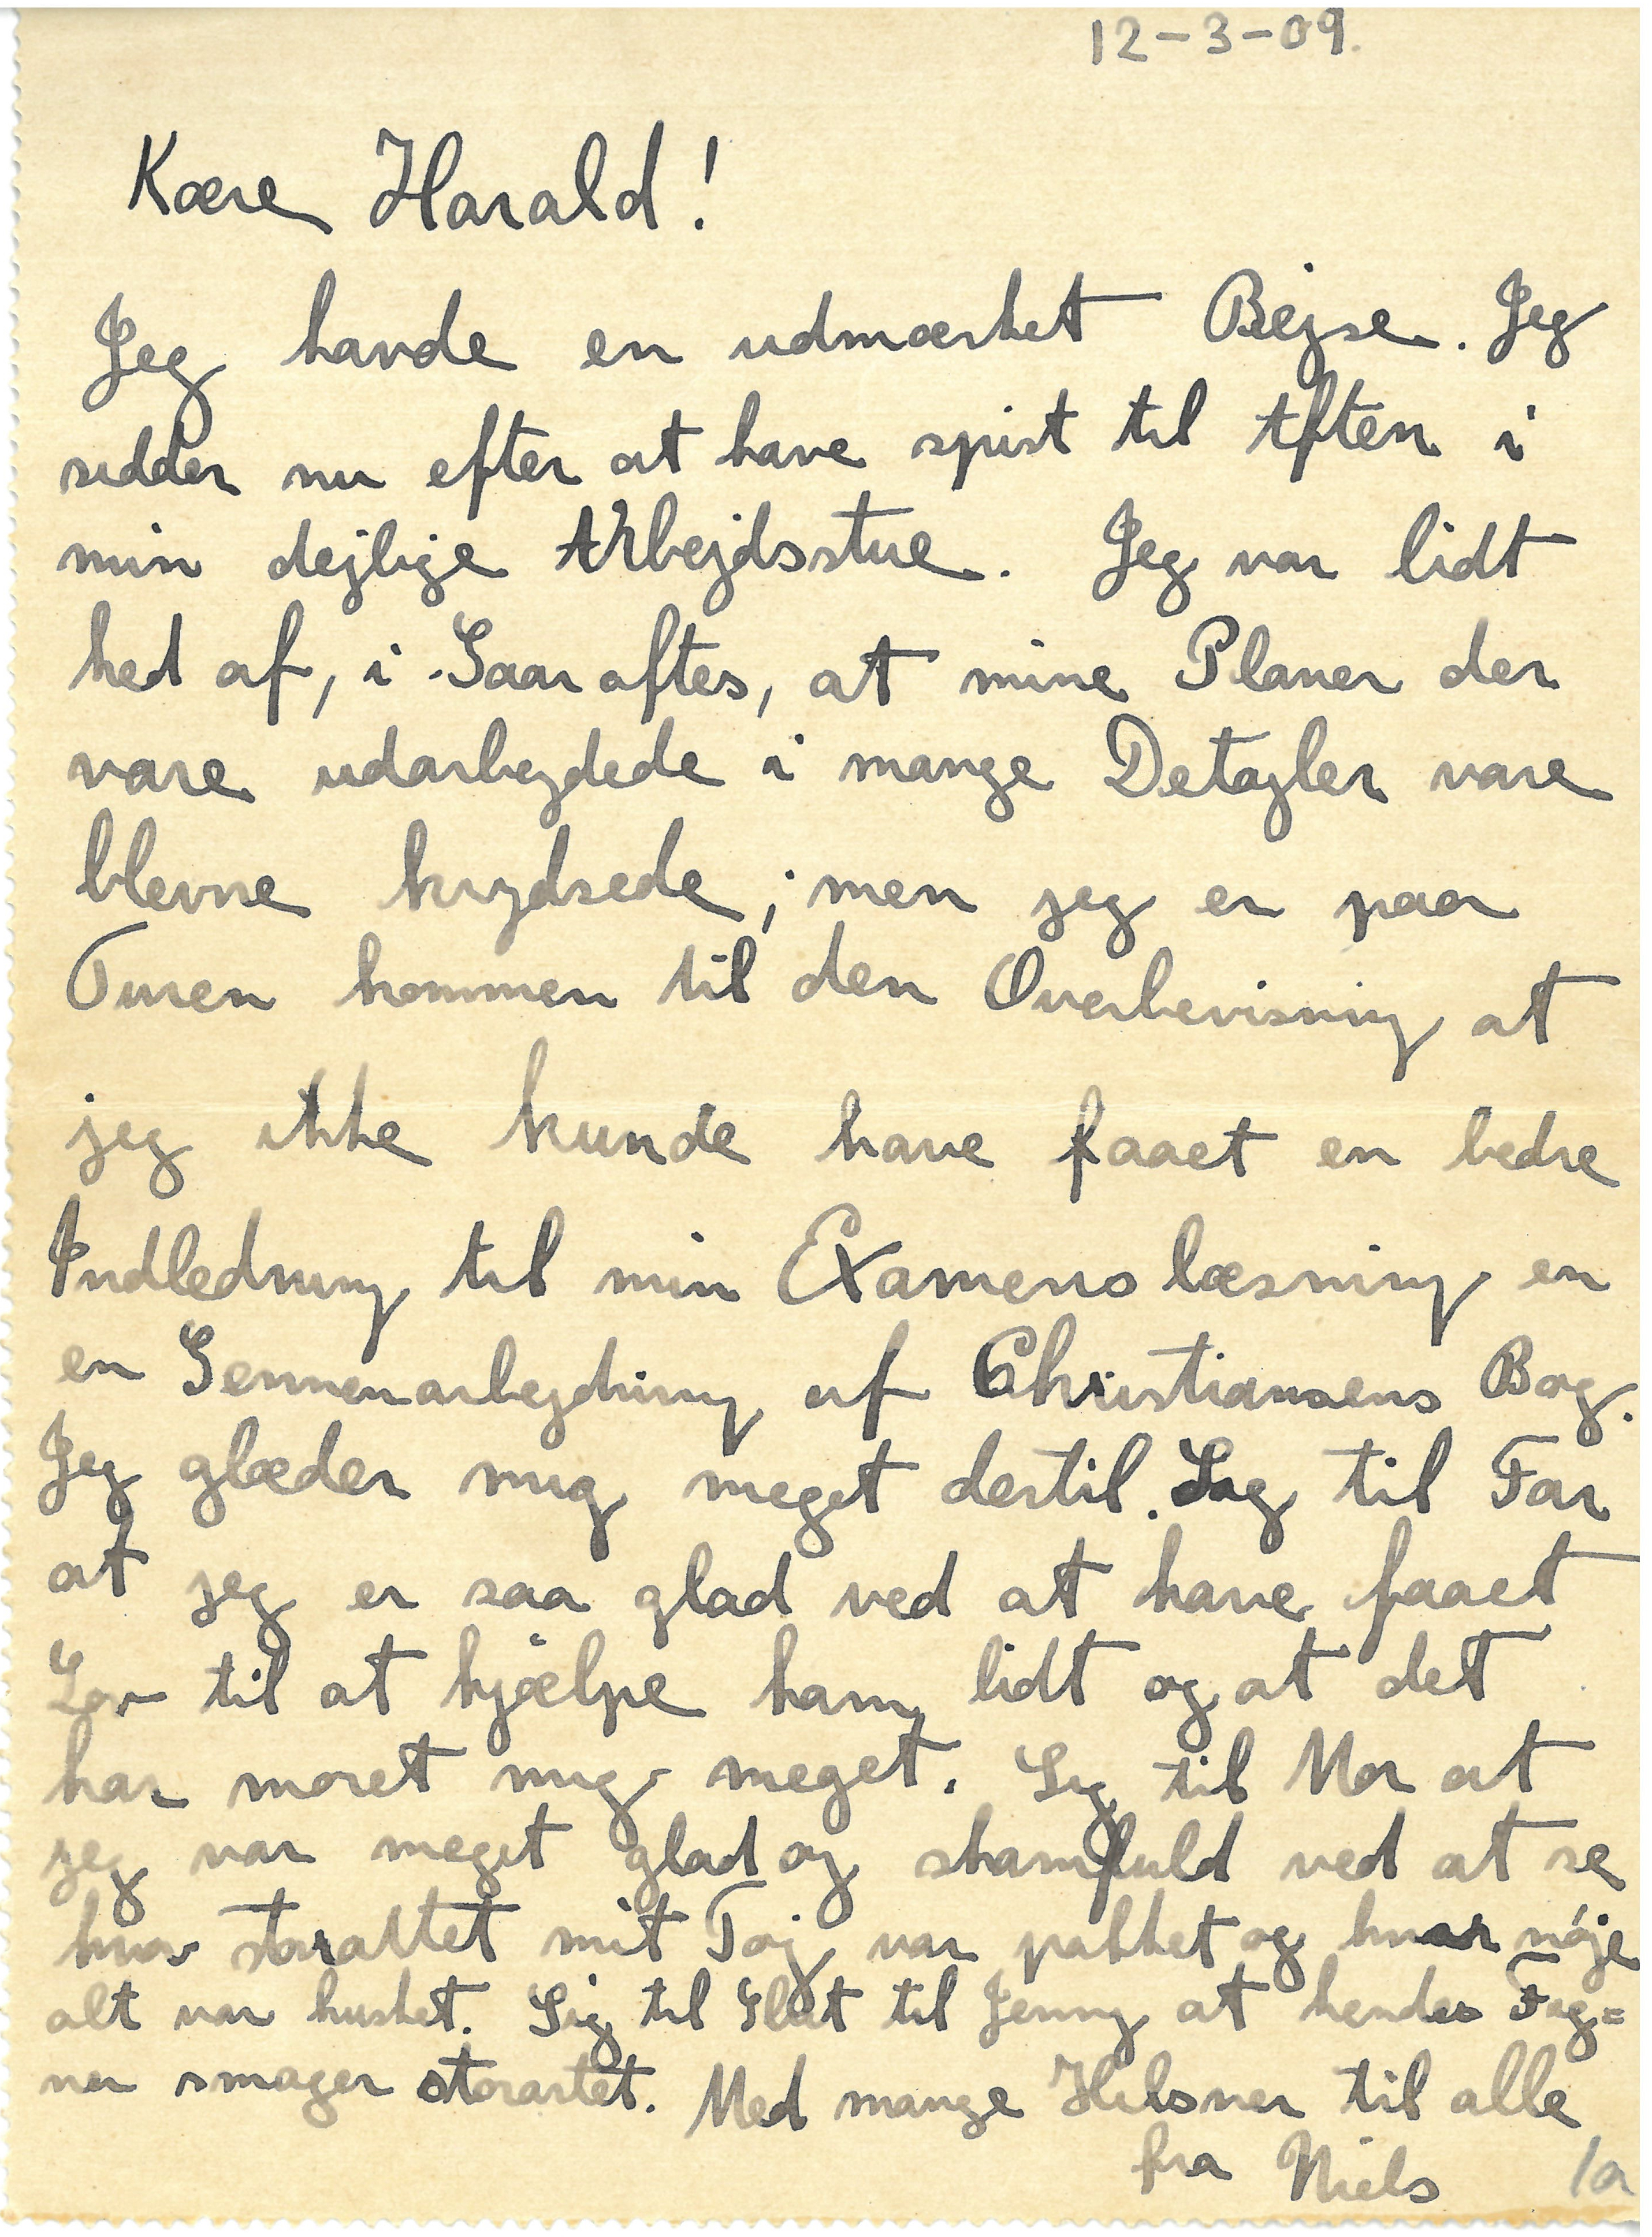 12-3-09.
Kære Harald!
Jeg havde en udmærket Rejse. Jeg
sidder nu efter at have spist til Aften i
min dejlige Arbejdsstue. Jeg var lidt
ked af, i Gaar aftes, at mine Planer der
vare udarbejdede i mange Detajler vare
blevne krydsede; men jeg er paa
Turen kommen til den Overbevisning at
jeg ikke kunde have faaet en bedre
Indledning til min Examenslæsning en
en Gennenarbejdning af Christiansens Bog.
Jeg glæder mig meget dertil. Sig til Far
at jeg er saa glad ved at have faaet
Lov til at hjælpe ham lidt og at det
har moret mig meget. Sig til Mor at
jeg var meget glad og skamfuld ved at se
hvor storartet mit Tøj var pakket og hvor nøje
alt var husket. Sig til Slut til Jenny at hendes Fig=
ner smager storartet. Med mange Hilsner til alle
fra Niels
1a